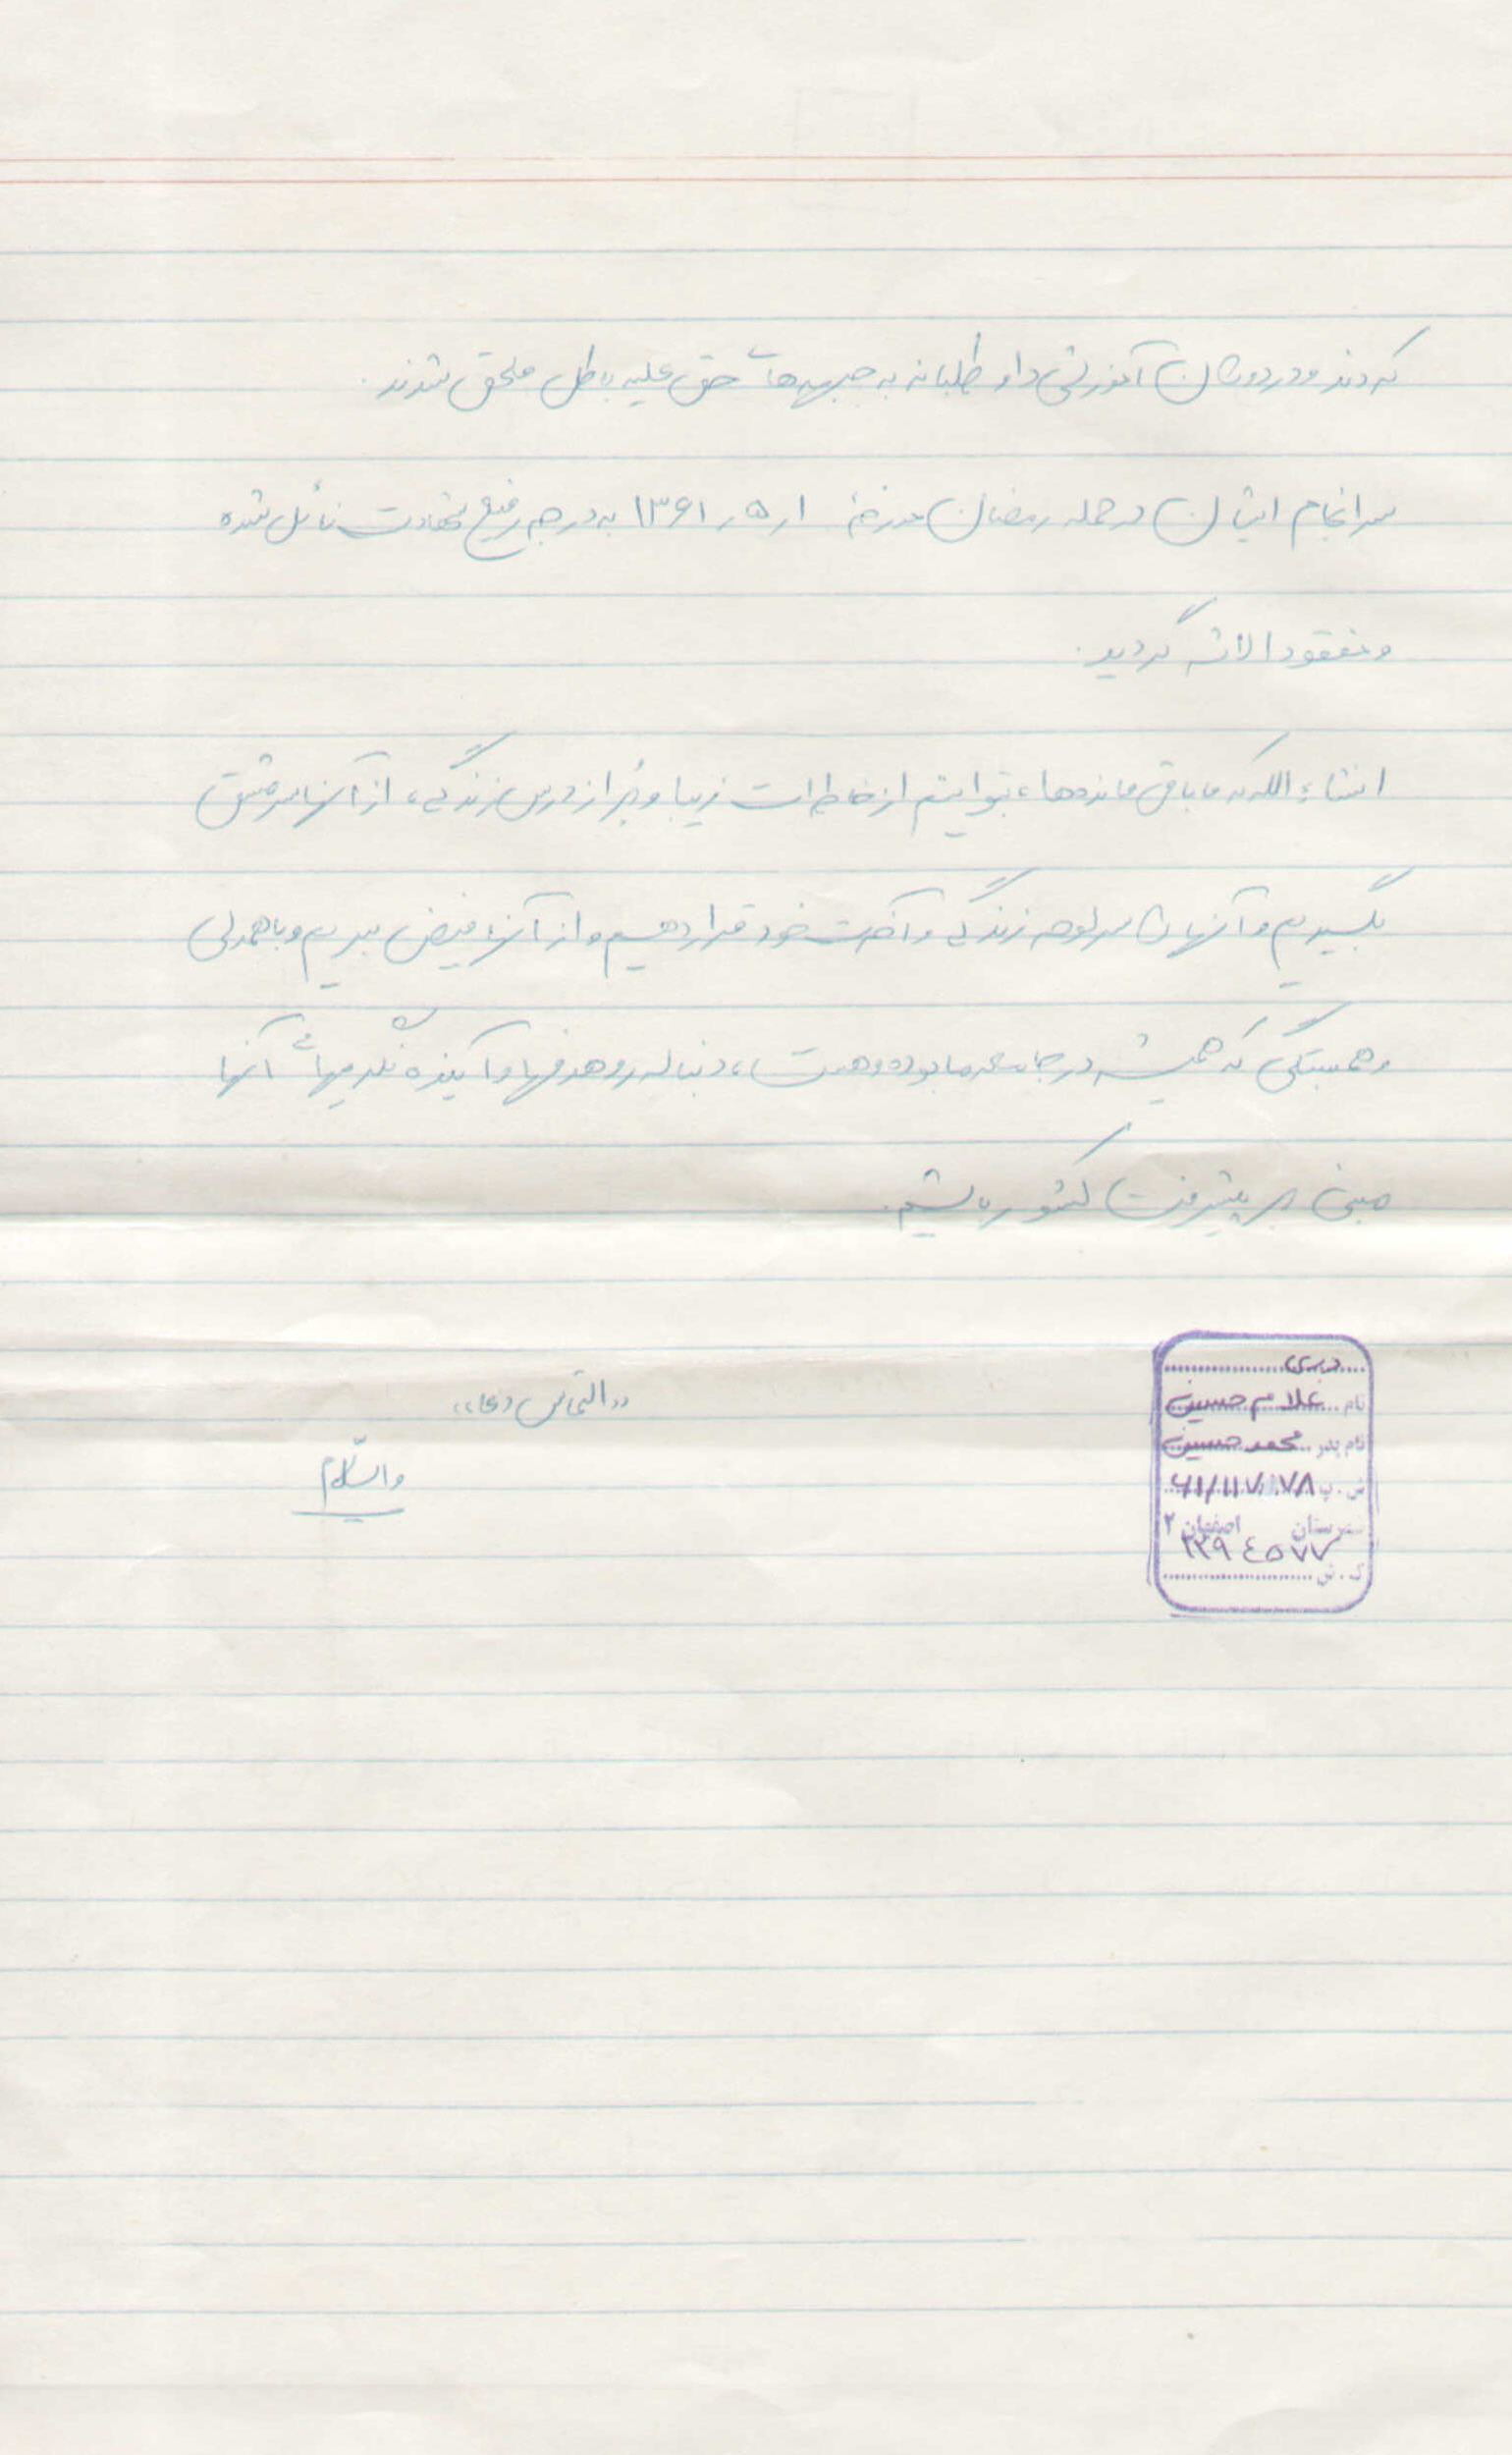 کردند و در دوران آموزشی داوطلبانه به جبهه‌های حق علیه باطل ملحق شدند.
سرانجام ایشان در حمله رمضان مورخهٔ ۱ر۵ر۱۳۶۱ به درجه رفیع شهادت نائل شده
و مفقودالاثر گردید.
انشاءالله که ما باقی مانده‌ها، بتوانیم از خاطرات زیبا و پُر از درس زندگی، از آنها سرمشق
بگیریم و آنها را سرلوحه زندگی و آخرت خود قرار دهیم و از آنها فیض ببریم و با همدلی
و همبستگی که همیشه در جامعه ما بوده و هست، دنباله رو هدفها و انگیزه‌های آنها
مبنی بر پیشرفت کشور باشیم.
«التماس دعا»
والسّلام
دری
نام غلامحسین
نام پدر محمدحسین
ش.پ ۶۱/۱۱۷۰۷۸
شهرستان اصفهان ۲
۲۳۹٤٥۷۷
ک.ش